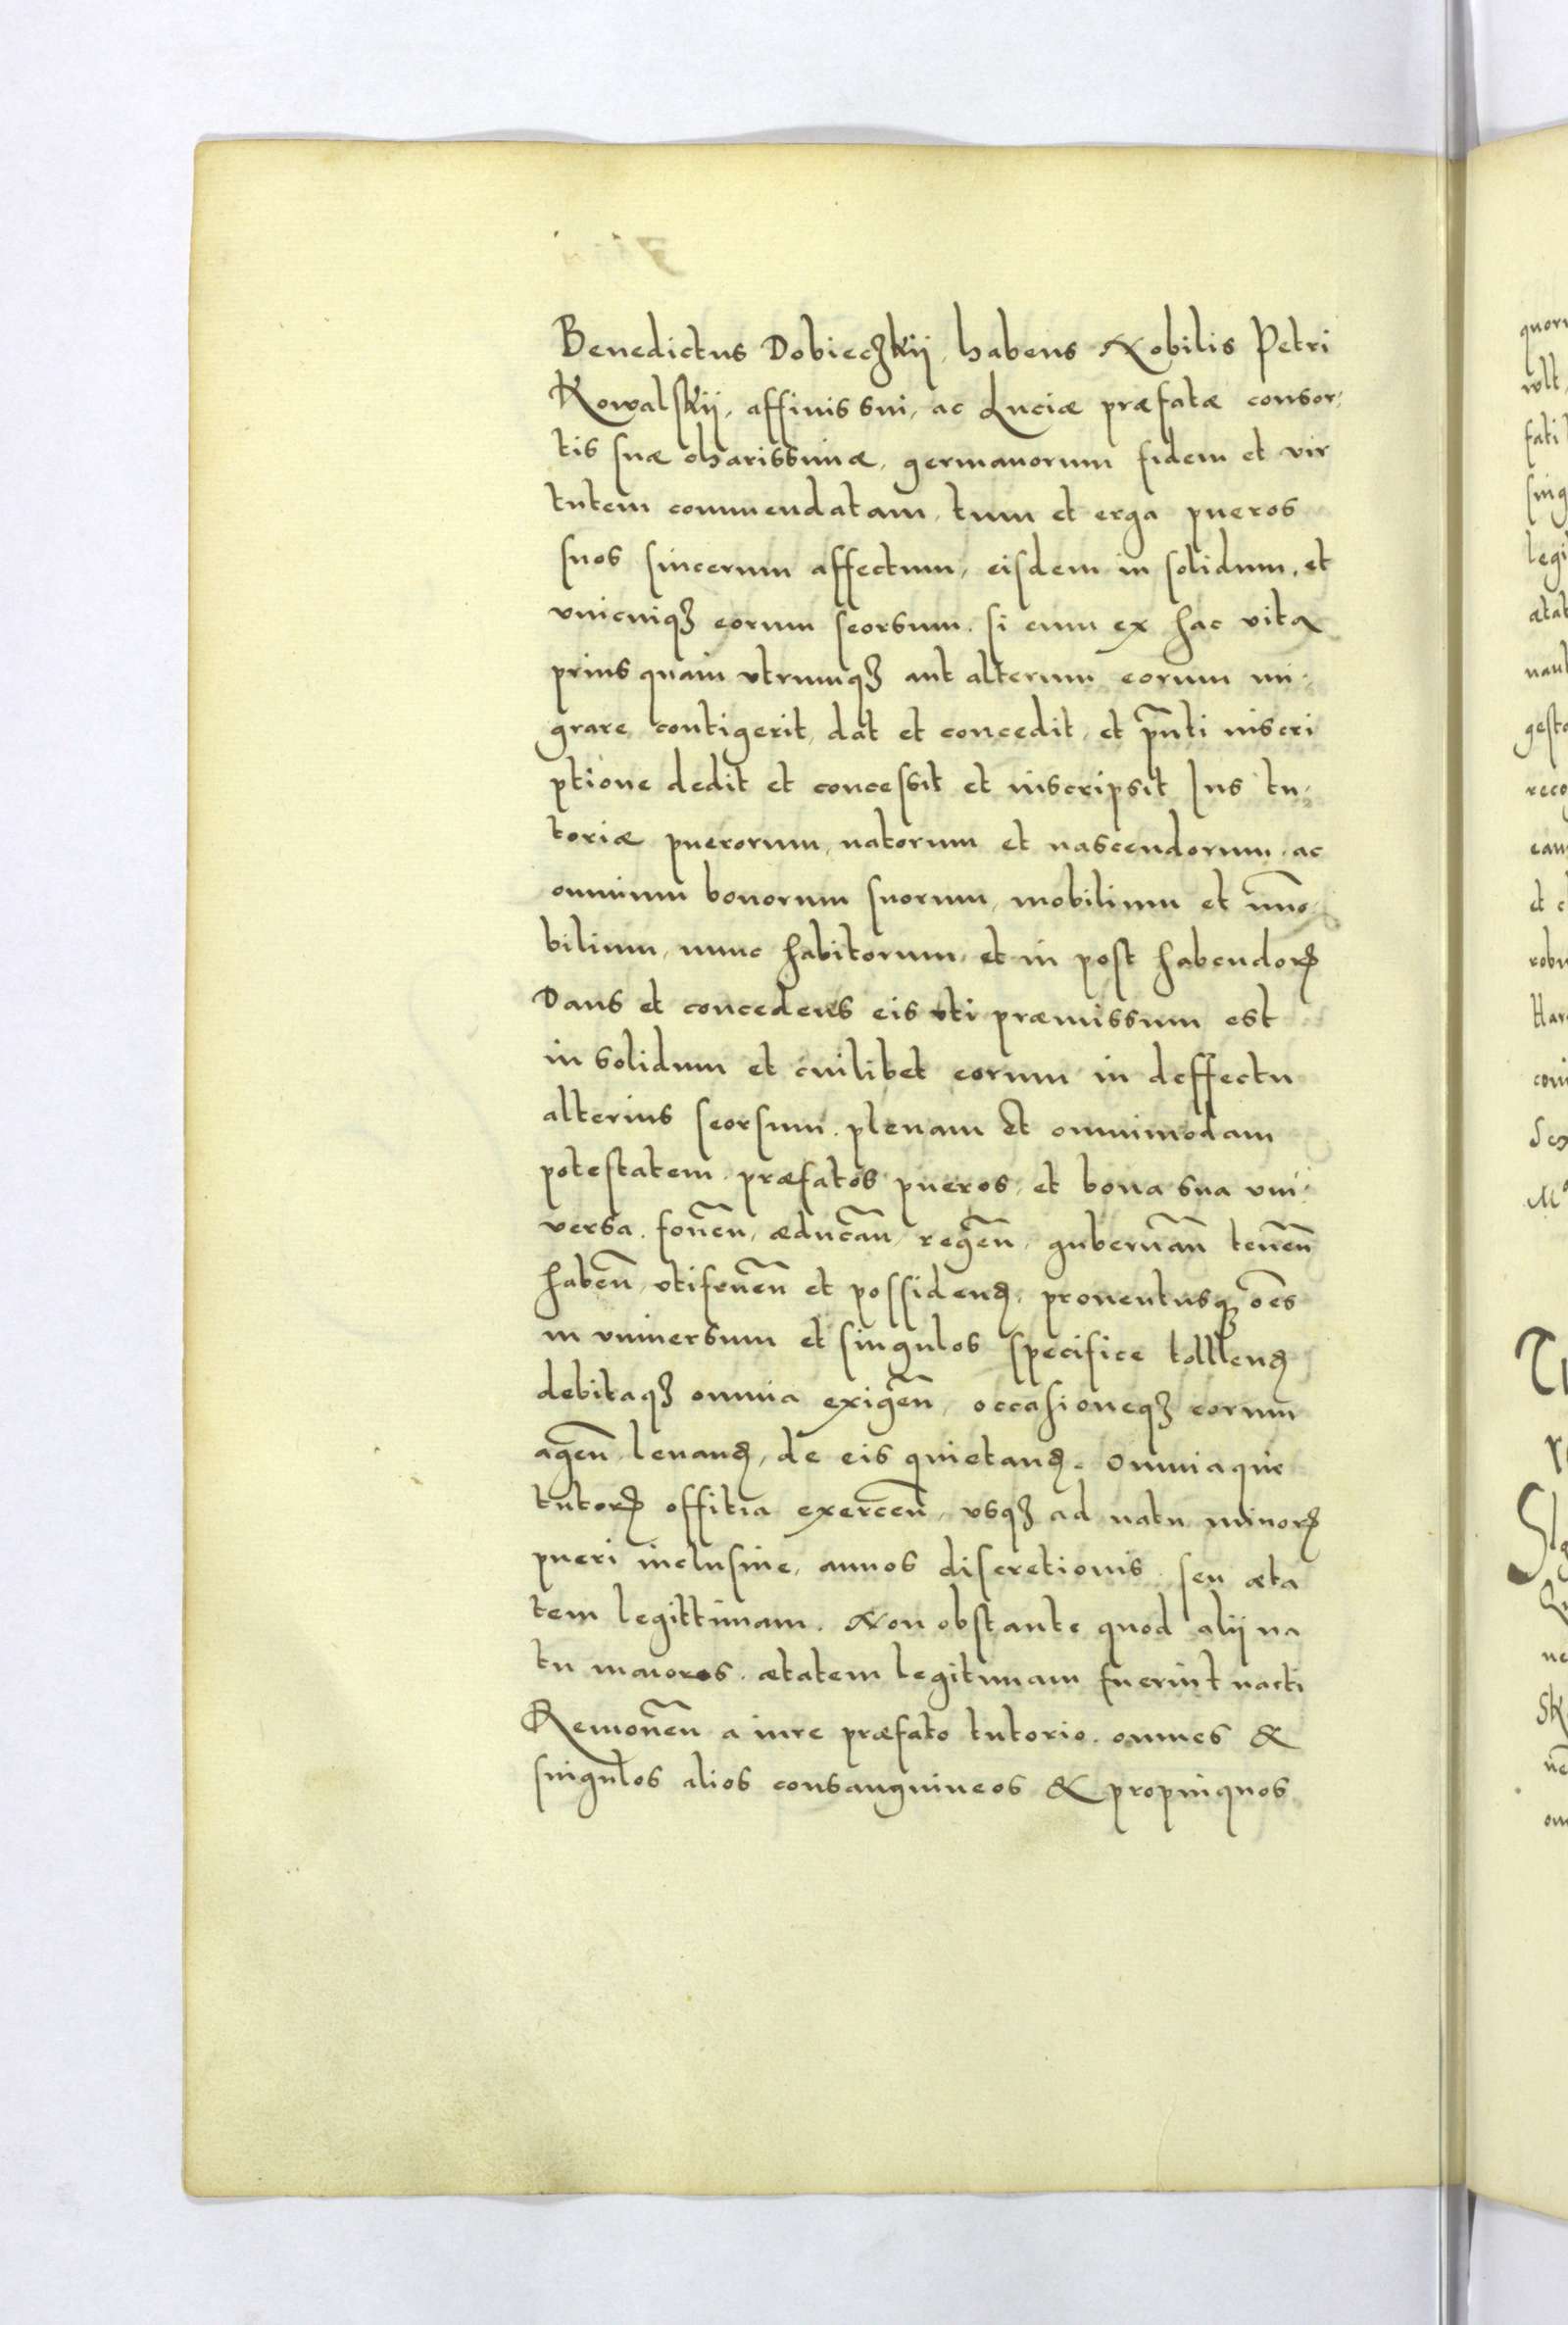 Benedictus Dobieczkij, habens Nobilis Petri
Kowalskij, affinis sui, ac Luciæ præfatæ consor:
tis suæ charissimæ, germanorum fidem et vir
tutem commendatam, tum et erga pueros
suos sincerum affectum, eisdem in solidum, et
vnicuiqȝ eorum seorsum. si eum ex hac vita
prius quam vtrumqȝ aut alterum eorum mi:
grare contigerit, dat et concedit, et pñti inscri
ptione dedit et concessit et inscripsit Ius tu:
toriæ puerorum, natorum et nascendorum. ac
omnium bonorum suorum, mobilium et im̃o:
bilium, nunc habitorum, et in post habendorꝝ
Dans et concedens eis vti præmissum est
in solidum et cuilibet eorum in deffectu
alterius seorsum. plenam et omnimodam
potestatem. præfatos pueros, et bona sua vni:
versa. foueñ, æducañ, regeñ, gubernañ teneñ
habeñ, vtifrueñ et possidenꝺ. prouentusqȝ oẽs
in vniuersum et singulos specifice tolllenꝺ
debitaqȝ omnia exigeñ, occasioneqȝ eorum
ageñ leuanꝺ, de eis quietanꝺ. Omniaque
tutorꝝ offitia exerceñ, vsqȝ ad natu minorꝝ
pueri inclusiue, annos discretionis. seu æta
tem legittimam. Non obstante quod alij na
tu maiores. ætatem legitimam fuerint nacti
Remoueñ a iure præfato tutorio. omnes &
singulos alios consanguineos & propinquos